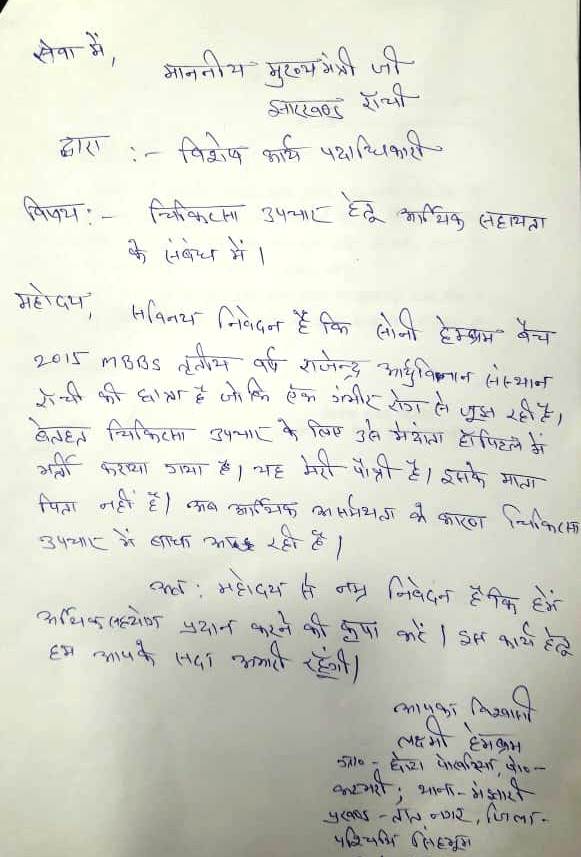 सेवा में,
माननीय मुख्यमंत्री जी
झारखण्ड राँची
द्वारा :- विशेष कार्य पदाधिकारी
विषय :- चिकित्सा उपचार हेतू आर्थिक सहायता
के संबंध में।
महोदय,
सविनय निवेदन है कि सोनी हेम्ब्रम बैच
2015 MBBS तृतीय वर्ष राजेन्द्र आर्युविज्ञान संस्थान
राँची की छात्रा है जोकि एक गंभीर रोग से जुझ रही है,
बेहतर चिकित्सा उपचार के लिए उसे मेदांता हॉस्पिटल में
भर्ती कराया गया है। यह मेरी पौत्री है। इसके माता
पिता नहीं है। अब आर्थिक असमर्थता के कारण चिकित्सा
उपचार में बाधा आ रही है।
अत: महोदय से नम्र निवेदन है कि हमें
आर्थिक सहयोग प्रदान करने की कृपा करें। इस कार्य हेतू
हम आपके सदा अभारी रहूँगी।
आपका विश्वासी
लक्ष्मी हेम्ब्रम
ग्रा०- पो०-
थाना-मंझारी
प्रखण्ड - तांतनगर, जिला-
पश्चिमी सिंहभूम